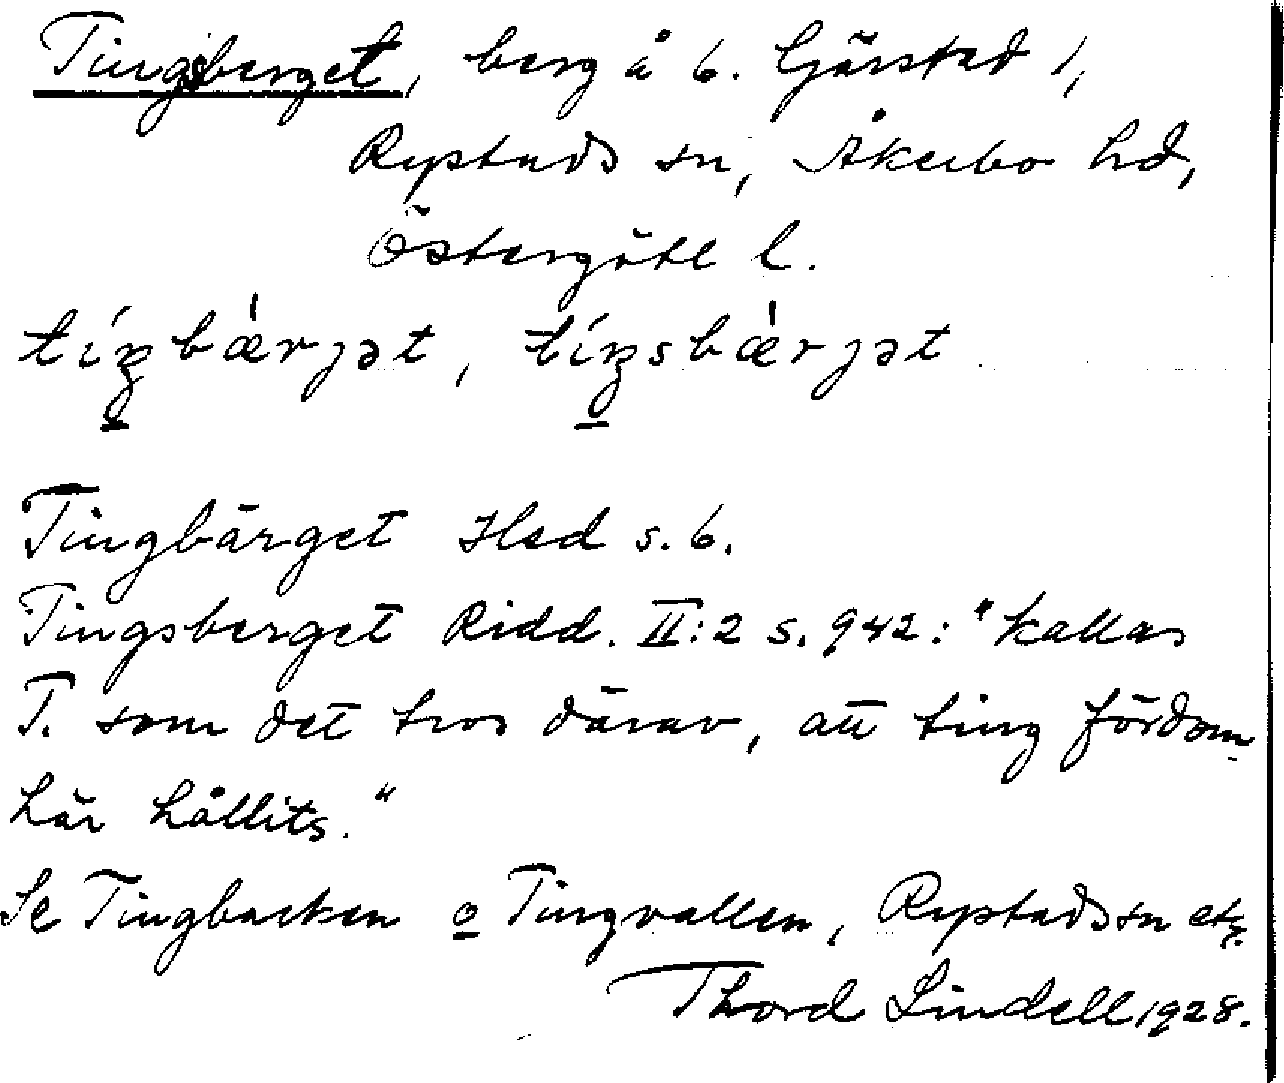 Tingsberget, berg å 6. Gärstad 1,
Rystads sn, Åkerbo hd,
Östergötl l.
tíŋbæ̀rjət, tíŋsbæ̀rjət.
Tingbärget Hsd s. 6.
Tingsberget Ridd. II:2 s. 942: "kallas
T. som det tros därav, att ting fördom
här hållits."
Se Tingbacken o Tingvallen, Rystads sn etc.
Thord Lindell 1928.